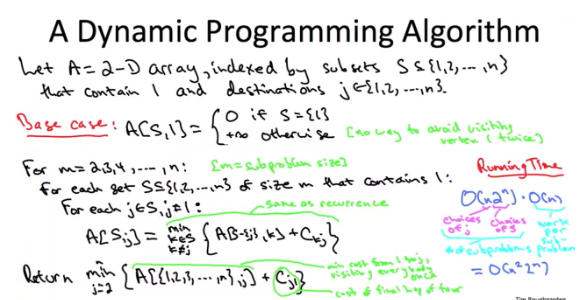 A Dynamic Programming Algorithm
Let A = 2-D array, indexed by subsets S ⊆ {1,2,...,n}
that contain 1 and destinations j ∈ {1,2,...,n}.
Base case: A[S,1] = { 0 if S = {1}
+∞ otherwise [no way to avoid visiting
vertex 1 twice]
For m = 2,3,4,...,n: [m = subproblem size]
For each set S ⊆ {1,2,...,n} of size m that contains 1:
For each j ∈ S, j ≠ 1:
same as recurrence
A[S,j] = min k∈S k≠j { A[S-{j},k] + Ckj }
Return min j=2 { A[{1,2,3,...,n},j] + Cj1 }
min cost from 1 to j,
visiting everybody
once
cost of final hop of tour
Running Time
O(n2ⁿ) · O(n)
choices of j
choices of S
work per subproblem
# of subproblems
= O(n²2ⁿ)
Tim Roughgarden